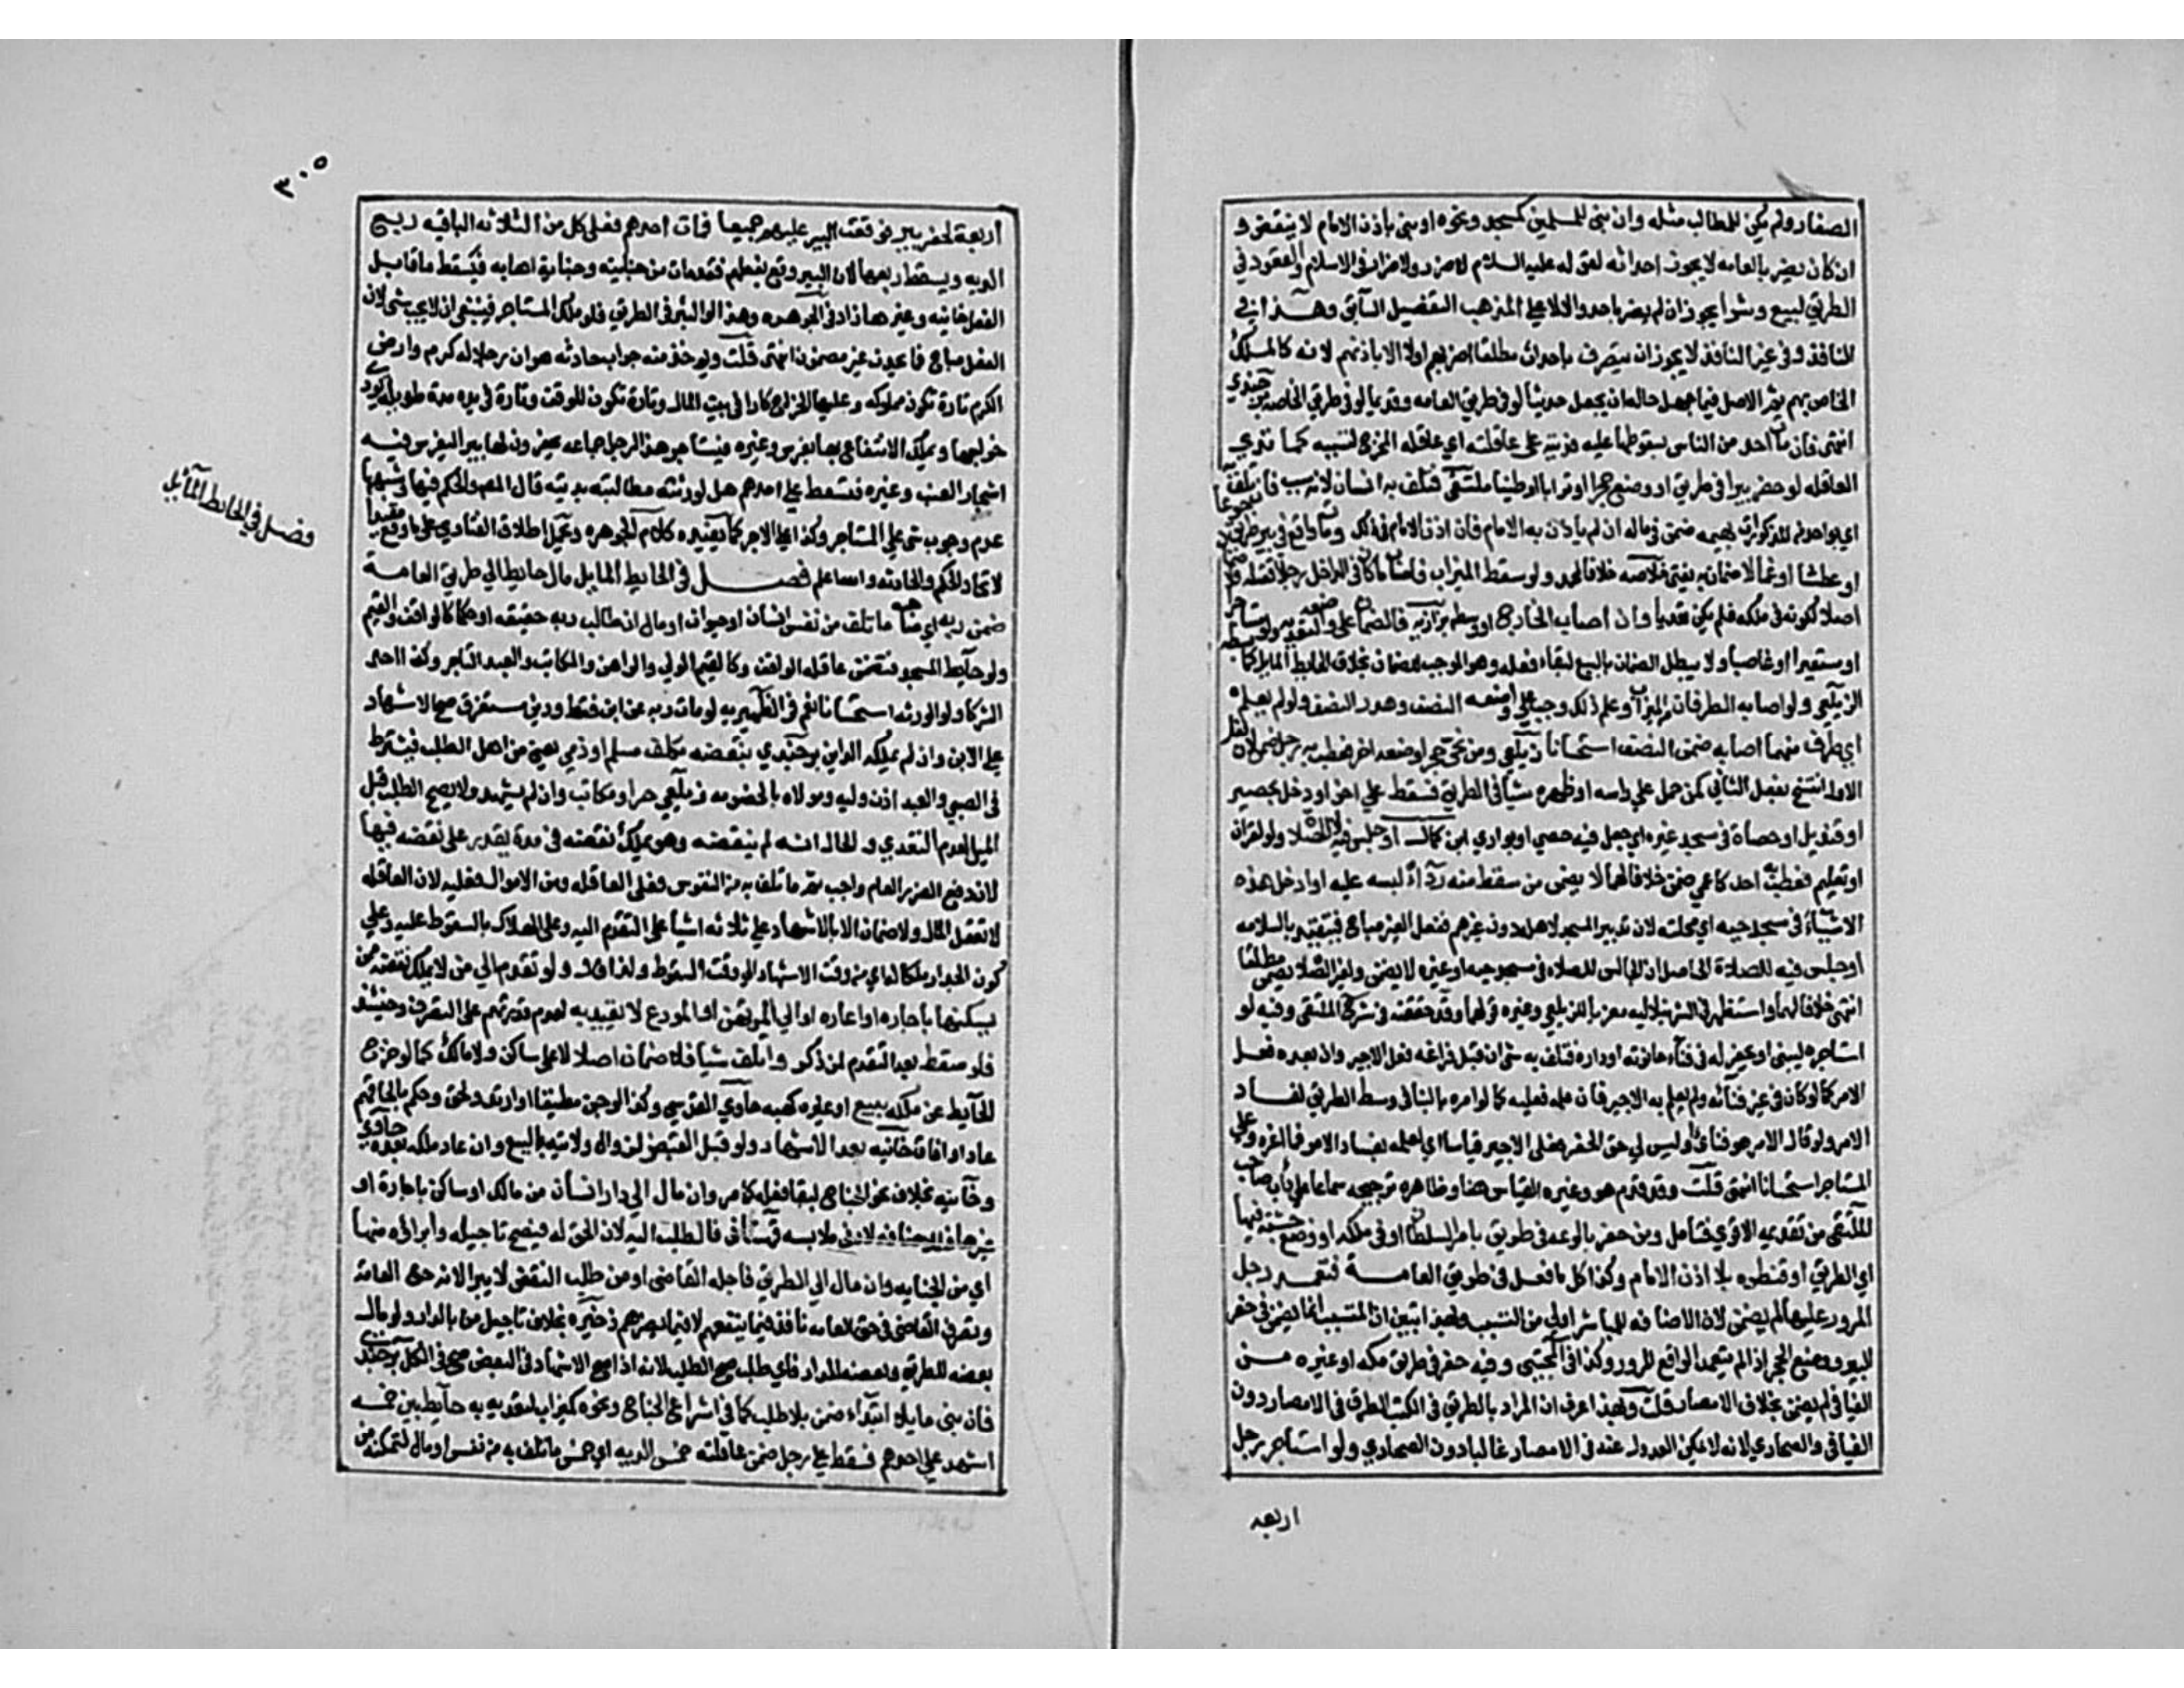 الصغار ولم يكن للمطالب مثله وان بنى للمسلمين كمسجد ونحوه او بنى باذن الامام لا ينقض و
ان كان يضر بالعامه لا يجوز احداثه لقوله عليه السلام لا ضرر ولا ضرار في الاسلام والقعود في
الطريق لبيع وشرا يجوز ان لم يضر باحد والا لا على المذهب التفصيل السابق وهذا في
النافذ وفي غير النافذ لا يجوز ان يتصرف باحداث مطلقا اضر بهم اولا الا باذنهم لانه كالملك
الخاص بهم ثم الاصل فيما جهل حاله ان يجعل حديثا لو في طريق العامه وقديما لو في طريق الخاصه برجندي
انتهى فان مات احد من الناس بسقوطها عليه فديته على عاقلته اي عاقلة المخرج لتسببه كما تدي
العاقله لو حفر بيرا في طريق او وضع حجرا او ترابا او طينا ملتقى فتلف به انسان لانه سبب فان تلف به
اي بواحد من المذكورات بهيمه ضمن في ماله ان لم ياذن به الامام فان اذن الامام في ذلك او مات واقع في بير طريق جوعا
او عطشا او غما لا ضمان به يفتى خلاصه خلافا لمحمد ولو سقط الميزاب فاصاب ما كان في الداخل رجلا فقتله فلا ضمان
اصلا لكونه في ملكه فلم يكن تعديا وان اصاب الخارج او وسطه بزازيه فالضمان على واضعه لتعديه ولو مستاجرا
او مستعيرا او غاصبا ولا يبطل الضمان بالبيع لبقاء فعله وهو الموجب للضمان بخلاف الحايط المايل كما بسطه
الزيلعي ولو اصابه الطرفان من الميزاب وعلم ذلك وجب على واضعه النصف وهدر النصف ولو لم يعلم
اي طرف منهما اصابه ضمن النصف استحسانا زيلعي ومن نحى حجرا وضعه اخر فعطب به رجل ضمن لان فعل
الاول انتسخ بفعل الثاني كمن حمل على راسه او ظهره شيا في الطريق فسقط على اخر او دخل بحصير
او قنديل او حصاة في مسجد غيره اي جعل فيه حصى او بواري ابن كمال او جلس فيه لا للصلاة ولو لقران
او تعليم فعطب به احد كاعمى ضمن خلافا لهما لا يضمن من سقط منه رداء لبسه عليه او ادخل هذه
الاشياء في مسجد حيه اي محلته لان تدبير المسجد لاهله دون غيرهم ففعل الغير مباح فيتقيد بالسلامه
او جلس فيه للصلاة الحاصل ان الجالس للصلاه في مسجد حيه او غيره لا يضمن ولغير الصلاة يضمن مطلقا
انتهى خلافا لهما واستظهر في الشرنبلاليه معزيا للزيلعي وغيره قولهما وقد حققته في شرح الملتقى وفيه لو
استاجره ليبني او يحفر له في فناء حانوته او داره فتلف به شى ان قبل فراغه فعلى الاجير وان بعده فعلى
الامر كما لو كان في غير فنائه ولم يعلم به الاجير فان علم فعليه كما لو امره بالبنا في وسط الطريق لفساد
الامر ولو قال الامر هو فنائي وليس لي حق الحفر فعلى الاجير قياسا اي لعلمه بفساد الامر فما غره وعلى
المستاجر استحسانا انتهى قلت وقد قدم هو وغيره القياس هنا وظاهره ترجيحه سيما على داب صاحب
الملتقى من تقديمه الاقوى فتامل ومن حفر بالوعه في طريق بامر السلطان او في ملكه او وضع خشبة فيها
اي الطريق او قنطره بلا اذن الامام وكذا كل ما فعل في طريق العامة فتعمد رجل
المرور عليها لم يضمن لان الاضافه للمباشر اولى من المتسبب وبهذا تبين ان المتسبب انما يضمن في حفر
البير ووضع الحجر اذا لم يتعمد الواقع المرور وكذا في المجتبى وفيه حفر في طريق مكه او غيره من
الفيافي لم يضمن بخلاف الامصار قلت وبهذا عرف ان المراد بالطريق في الكتب الطرق في الامصار دون
الفيافي والصحاري لانه لا يمكن العدول عنه في الامصار غالبا دون الصحاري ولو استاجر رجل
اربعه
٣٠٥
اربعة لحفر بير فوقعت البير عليهم جميعا فمات احدهم فعلى كل من الثلاثه الباقيه ربع
الديه ويسقط ربعها لان البير وقع بفعلهم فقد مات من جنايته وجناية اصحابه فيسقط ما قابل
الفعل خانيه وغيرها زاد في الجوهره وهذا لو البير في الطريق فلو ملك المستاجر فينبغي ان لا يجب شى لان
الفعل مباح فما يحدث غير مضمون انتهى قلت ويوخذ منه جواب حادثه هو ان رجلا له كرم وارض
الكرم تارة تكون مملوكه وعليها الخراج كاراضي بيت المال وتارة تكون للوقت وتارة في يده مدة طويله يودي
خراجها ويملك الانتفاع بها بغرس وغيره فيستاجر هذا الرجل جماعه يحفرون له بيرا ليغرس فيه
اشجار العنب وغيره فسقط على احدهم هل لورثته مطالبته بديته قال المص والحكم فيها وشبهها
عدم وجوب شى على المستاجر وكذا على الاجير كما يفيده كلام الجوهره ويحمل اطلاق الفتاوي على ما وقع مقيدا
لاتحاد الحكم والحادثه والله اعلم فصل في الحايط المايل مال حايط الى طريق العامة
فصل في الحايط المآيل
ضمن ربه اي صاحبه ما تلف من نفس انسان او حيوان او مال ان طالب ربه حقيقه او حكما كالواقف والقيم
ولو حايط المسجد فتضمن عاقلة الواقف وكالقيم الولي والراهن والمكاتب والعبد التاجر وكذا احد
الشركا ولو الورثه استحسانا نعم في الظهيريه لو مات ربه عن ابن فقط ودين مستغرق صح الاشهاد
على الابن وان لم يملكه الدين برجندي بنقضه مكلف مسلم او ذمي يعني من اهل الطلب فيشترط
في الصبي والعبد اذن وليه ومولاه بالخصومه زيلعي حرا ومكاتب وان لم يشهد ولا يصح الطلب قبل
الميل لعدم التعدي و الحال انه لم ينقضه وهو يملك نقضه في مدة يقدر على نقضه فيها
لان دفع الضرر العام واجب ثم ما تلف به من النفوس فعلى العاقله ومن الاموال فعليه لان العاقله
لا تعقل المال ولا ضمان الا بالاشهاد على ثلاثه اشيا على التقدم اليه وعلى الهلاك بالسقوط عليه وعلى
كون الجدار ملكا له اي من وقت الاشهاد الى وقت السقوط ولذا قال ولو تقدم الى من لا يملك نقضه ممن
يسكنها باجاره او اعاره او الى المرتهن او المودع لا يعتد به لعدم قدرتهم على التصرف وحينئذ
فلو سقط بعد التقدم لمن ذكر واتلف شيا فلا ضمان اصلا لا على ساكن ولا مالك كما لو خرج
الحايط عن ملكه ببيع او غيره كهبه حاوي القدسي وكذا لو جن مطبقا او ارتد ولحق وحكم بلحاقه ثم
عاد او افاق خانيه بعد الاشهاد ولو قبل القبض لزوال ولايته بالبيع وان عاد ملكه بعده حاوي
وخانيه بخلاف نحو الجناح لبقا فعله كما مر وان مال الى دار انسان من مالك او ساكن باجارة او
فالطلب اليه لان الحق له فيصح تاجيله وابراؤه منها
اي من الجنايه وان مال الى الطريق فاجله القاضي او من طلب النقض لا يبرا لانه حق العامه
وتصرف القاضي في حق العامه نافذ فيما ينفعهم لا فيما يضرهم ذخيره بخلاف تاجيل من بالدار ولو مال
بعضه للطريق وبعضه للدار فاي طلب صح الطلب لانه اذا صح الاشهاد في البعض صح في الكل برجندي
فان بنى مايلا ابتداء ضمن بلا طلب كما في اشراع الجناح ونحوه كميزاب لتعديه به حايط بين خمسه
اشهد على احدهم فسقط على رجل ضمن عاقلته خمس الديه اي خمس ما تلف به من نفس او مال لتمكنه من